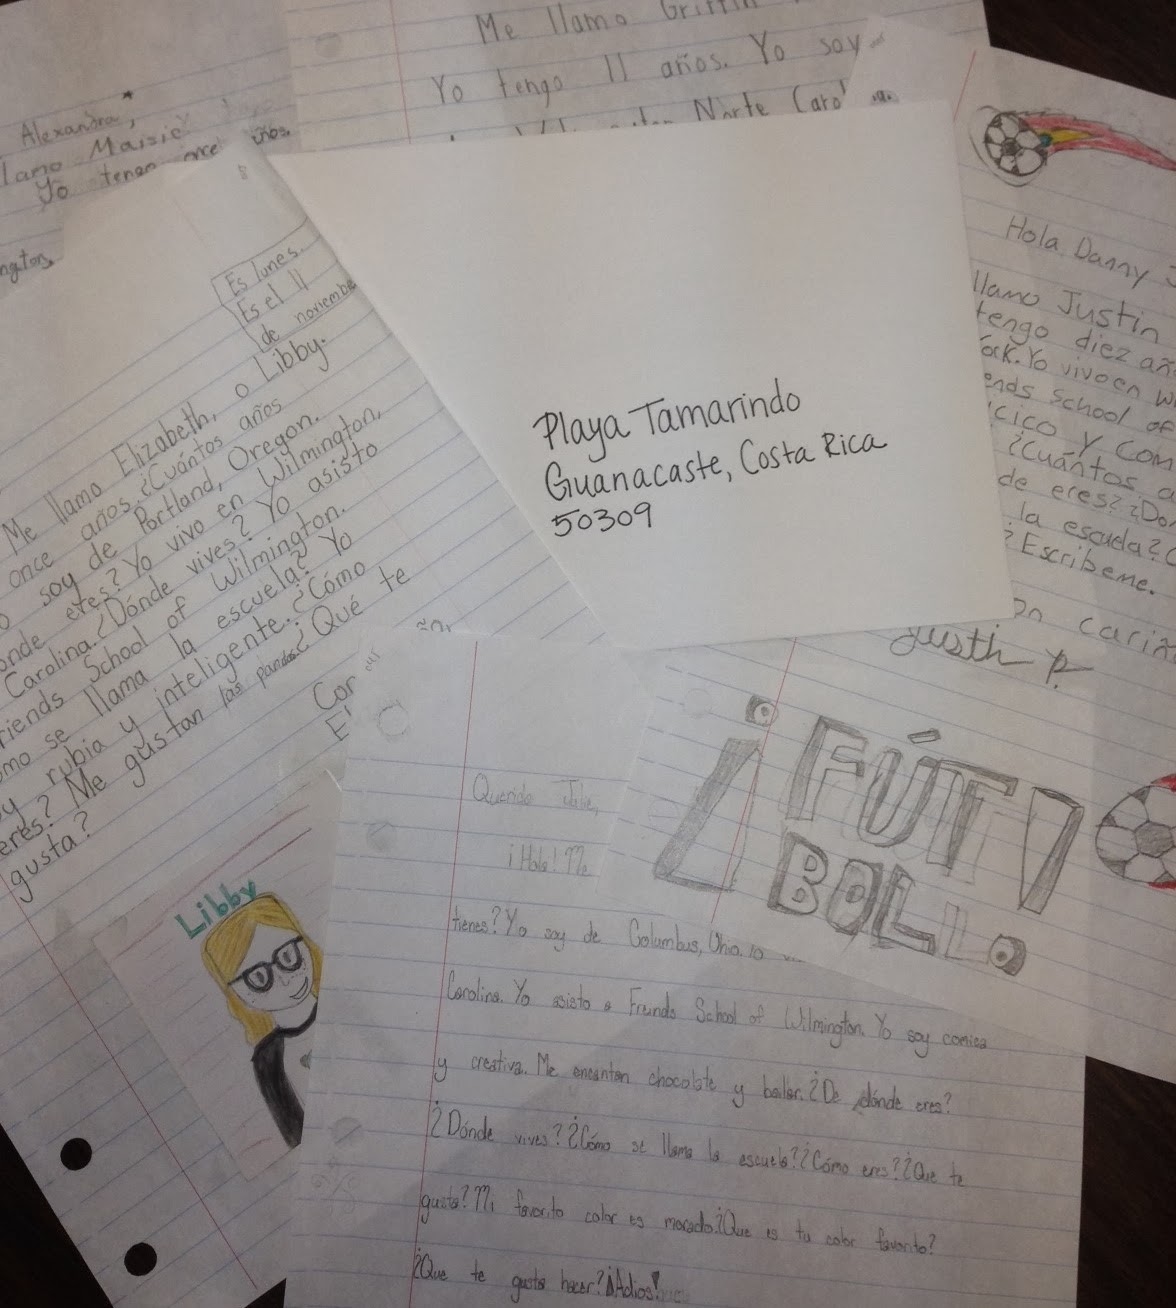 Alexandra,
lamo Maisie
Yo tenen once años
ngton,
Me llamo Griffin
Yo tengo 11 años. Yo soy
Norte Carol
Es lunes.
Es el 11
de noviembre
Me llamo Elizabeth, o Libby.
once años. ¿Cuántos años
o soy de Portland, Oregon.
onde eres? Yo vivo en Wilmington,
Carolina. ¿Dónde vives? Yo asisto
riends School of Wilmington.
omo se llama la escuela? Yo
y rubia y inteligente. ¿Cómo
eres? Me gustan las pandas. ¿Qué te
gusta?
Con
El
Libby
Playa Tamarindo
Guanacaste, Costa Rica
50309
Hola Danny J
llamo Justin
tengo diez añ
York. Yo vivo en W
ends School of
cico y com
¿Cuántos a
de eres? ¿Dó
la escuela? C
? Escribeme.
on cariñ
Justin P.
¡FÚT
BOL!
Querido Julie,
¡Hola! Me
tienes? Yo soy de Columbus, Ohio. Yo v
Carolina. Yo asisto a Freinds School of Wilmington. Yo soy comica
y creativa. Me encantan chocolate y bailar. ¿De dónde eres?
¿Dónde vives? ¿Cómo se llama la escuela? ¿Cómo eres? ¿Que te
gusta? Mi favorito color es morado. ¿Que es tu color favorito?
¿Que te gusta hacer? ¡Adios!